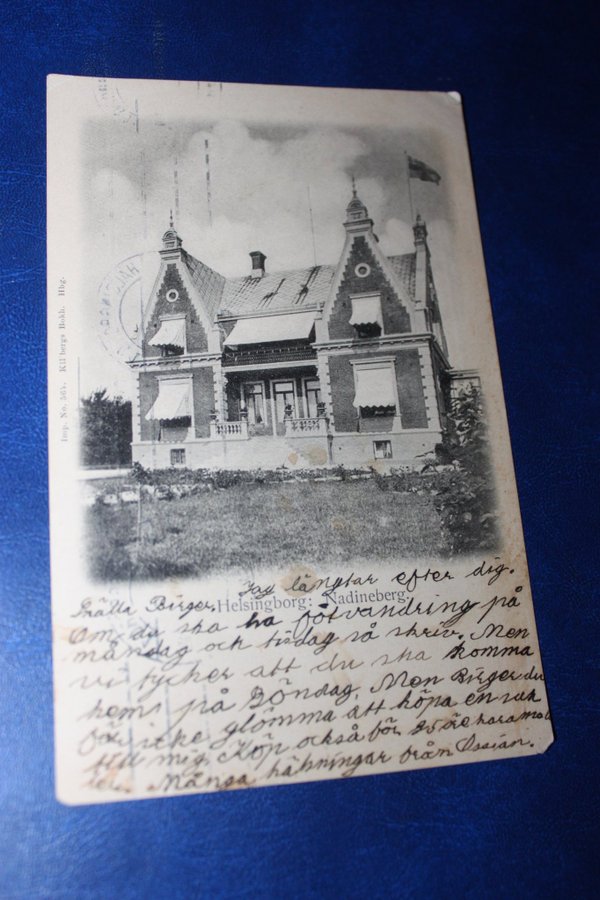 Imp. No. 564. Killbergs Bokh. Hbg.
Jag längtar efter dig.
Snälla Birger. Helsingborg: Nadineberg.
Om du ska ha fotvandring på
måndag och tisdag så skriv. Men
vi tycker att du ska komma
hem på Söndag. Men Birger du
får icke glömma att köpa en sak
till mig. Köp också för 25 öre karamel
ler. Många hälsningar från Ossian.